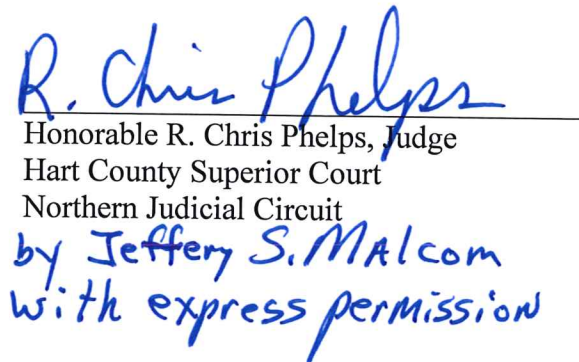 R. Chris Phelps
Honorable R. Chris Phelps, Judge
Hart County Superior Court
Northern Judicial Circuit
by Jeffery S. MAlcom
with express permission